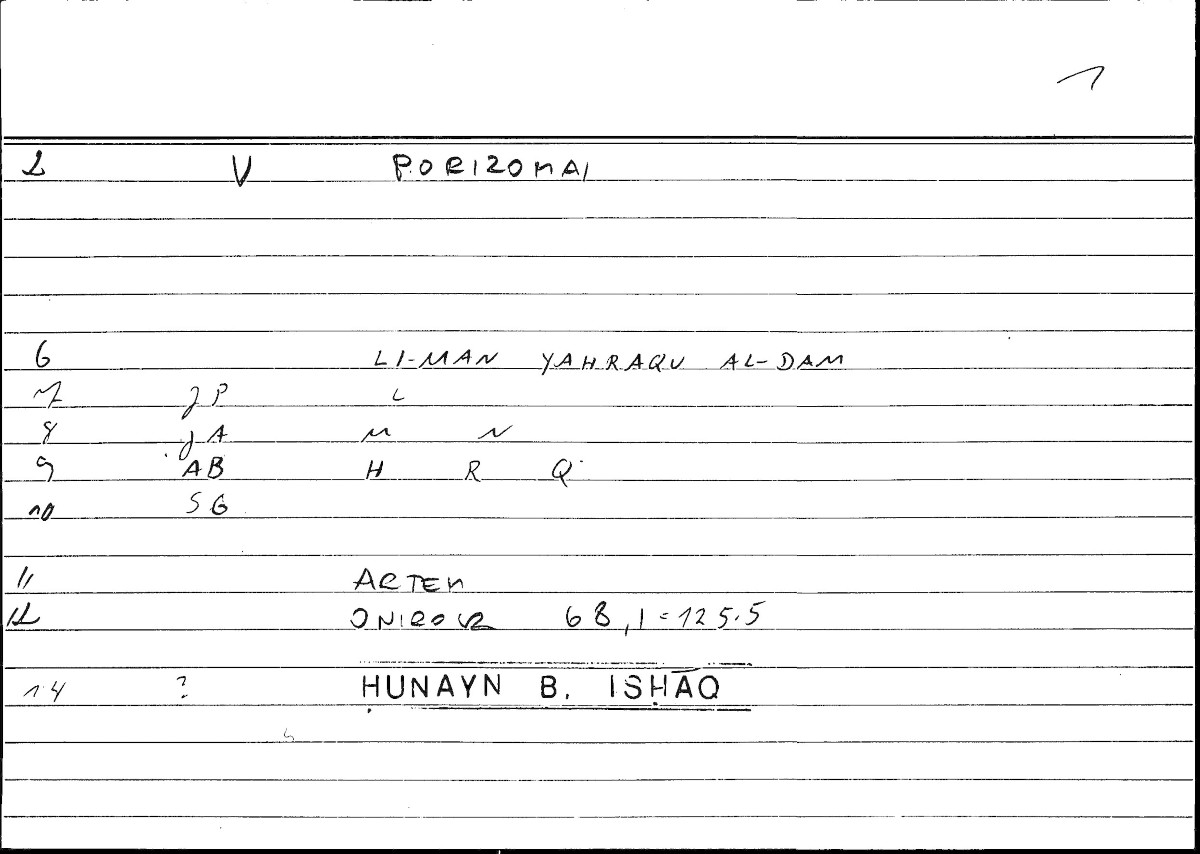 1
2 V PORIZOMAI
6 LI-MAN YAHRAQU AL-DAM
7 JP L
8 JA M N
9 AB H R Q
10 SG
11 ARTEM
12 ONIROCR 68,1=125.5
14 ? ḤUNAYN B. ISḤĀQ